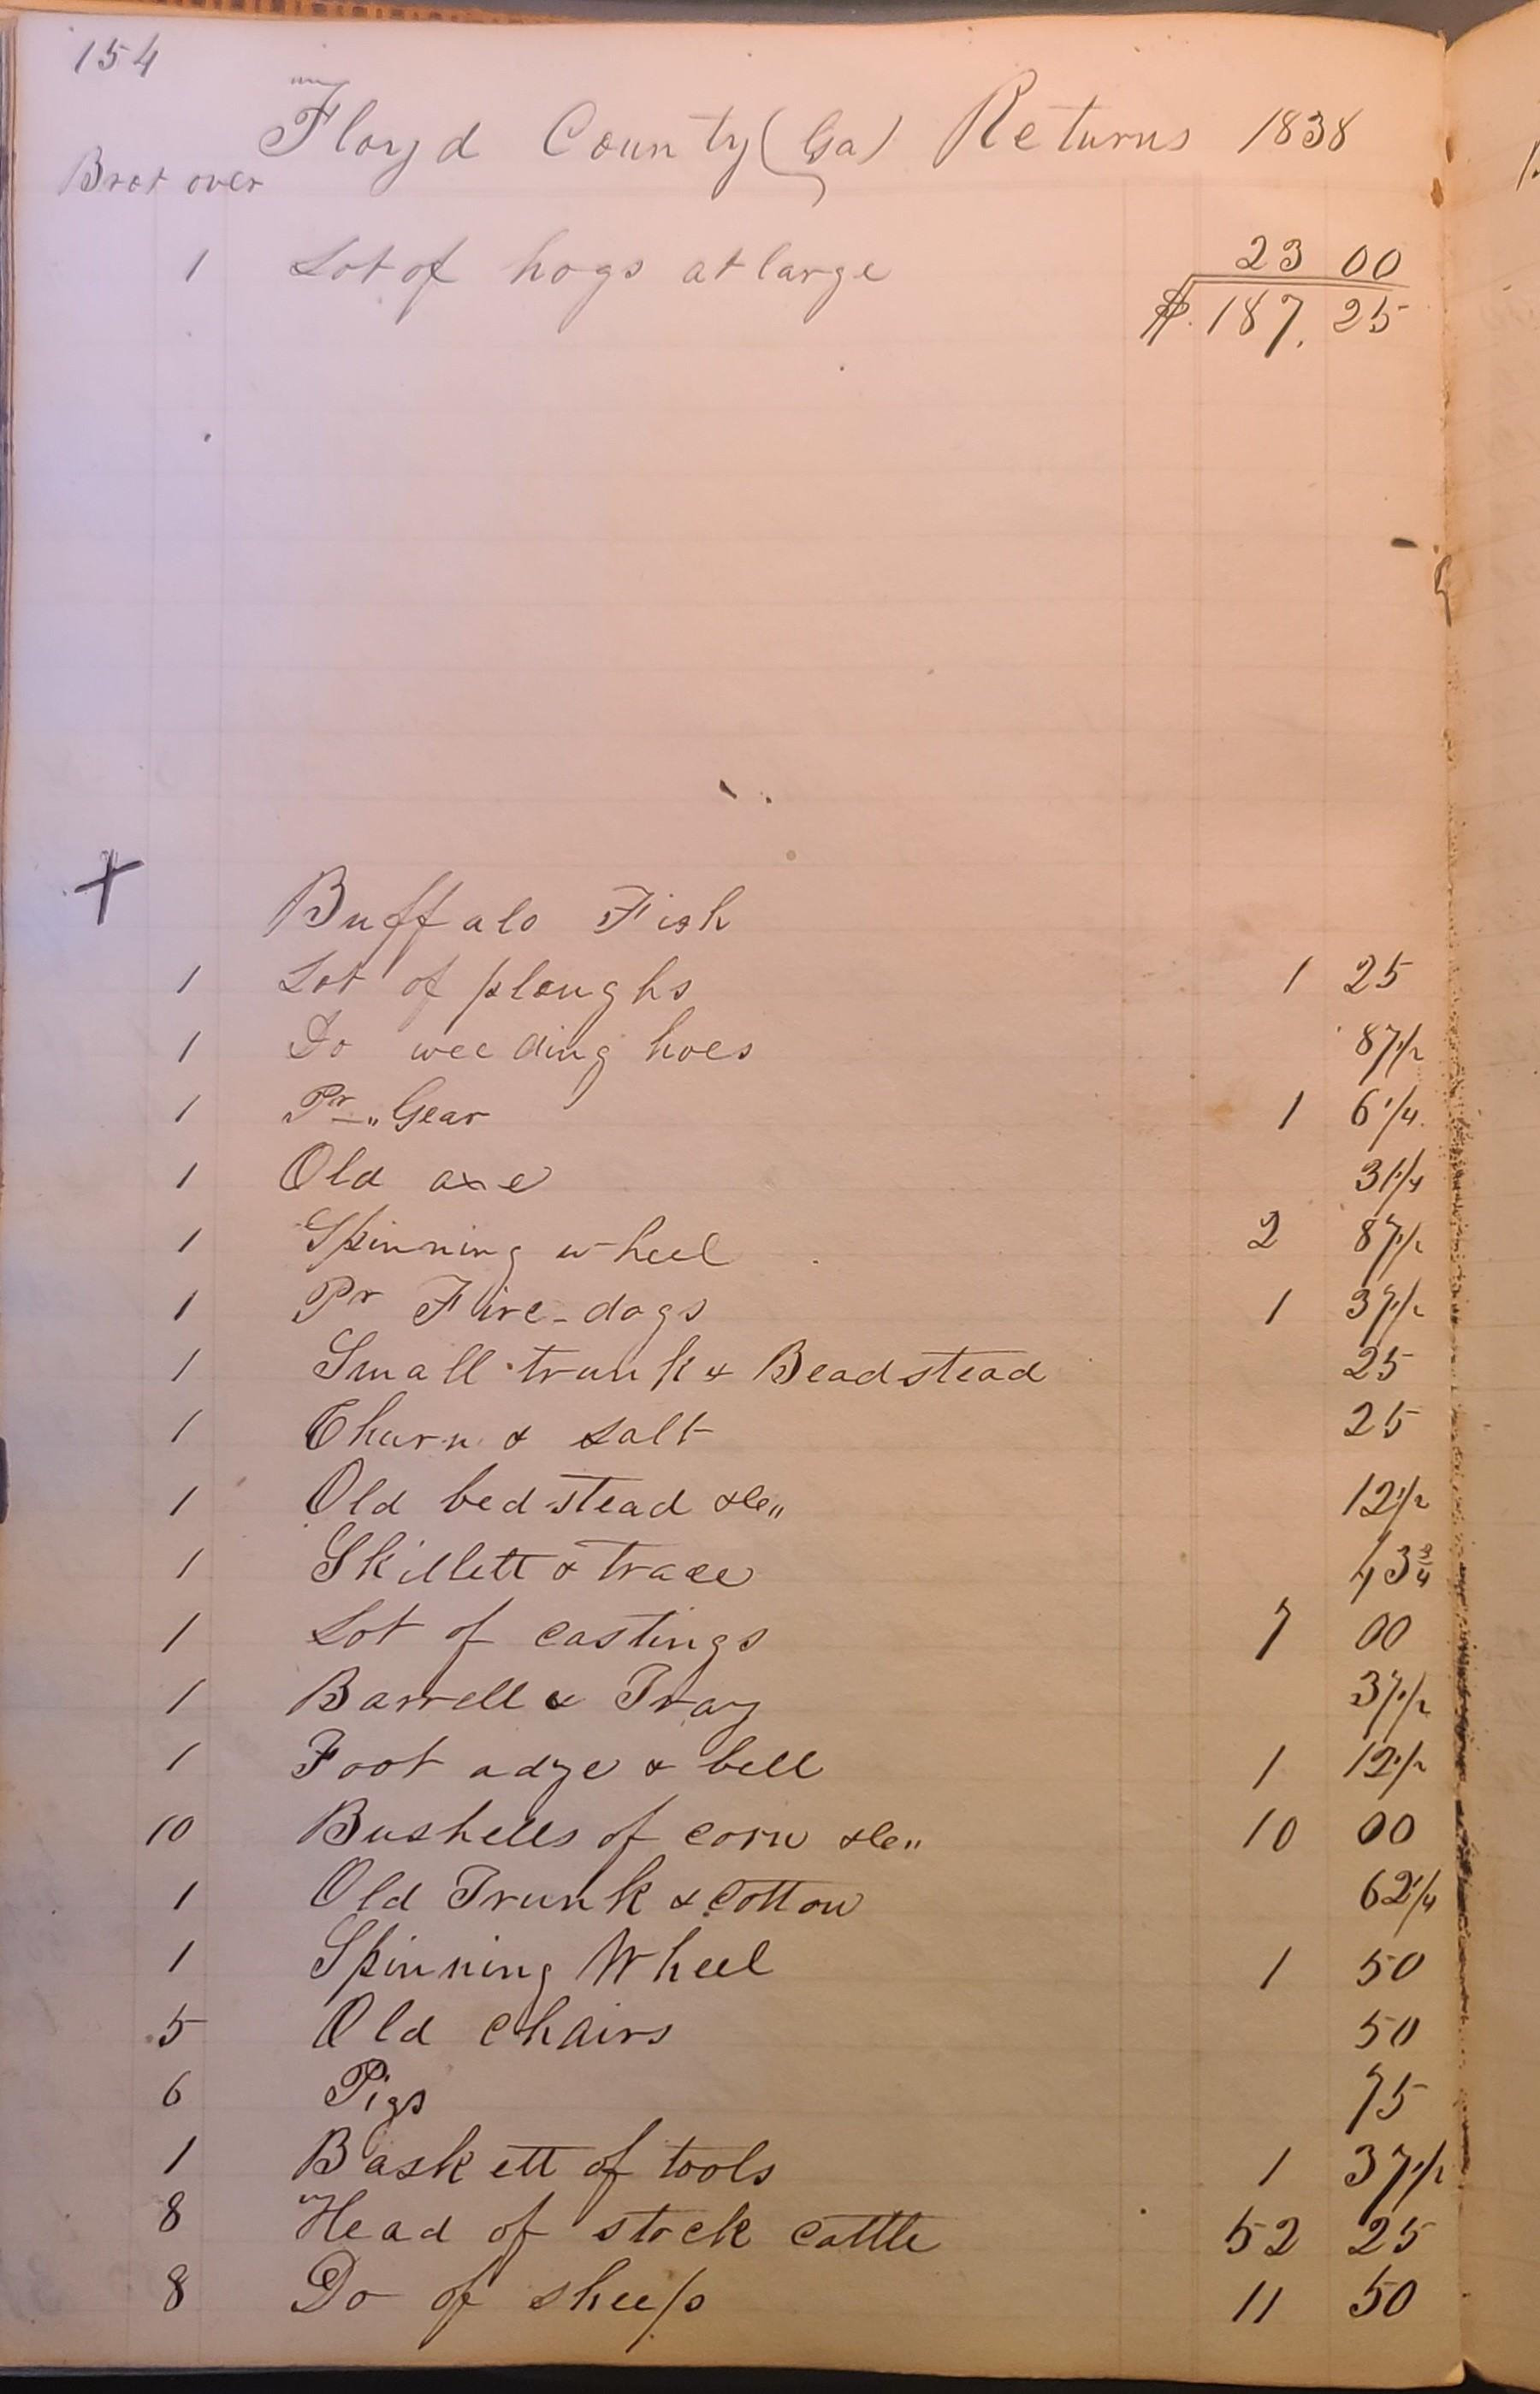 154
Floyd County (Ga) Returns 1838
Brot over
1 Lot of hogs at large 23 00
$187.25
+ Buffalo Fish
1 Lot of ploughs 1 25
1 Do weeding hoes 87 1/2
1 Pr " Gear 1 6 1/4
1 Old axe 31 1/4
1 Spinning wheel 2 87 1/2
1 Pr Fire-dogs 1 37 1/2
1 Small trunk & Beadstead 25
1 Churn & salt 25
1 Old bedstead &c" 12 1/2
1 Skillett & trace 43 3/4
1 Lot of castings 7 00
1 Barrell & Tray 37 1/2
1 Foot adze & bell 1 12 1/2
10 Bushells of corn &c" 10 00
1 Old Trunk & Cotton 62 1/4
1 Spinning Wheel 1 50
5 Old Chairs 50
6 Pigs 75
1 Baskett of tools 1 37 1/2
8 Head of stock cattle 52 25
8 Do of sheep 11 50